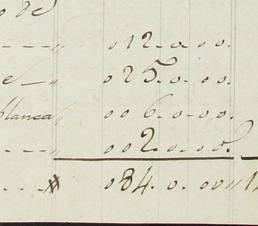 o de
- - - „ 012. 0. 00.
e - „ 025. 0. 00.
blanca „ 006. 0. 00.
- - „ 002. 0. 00.
- - - 084. 0. 00 „ 1